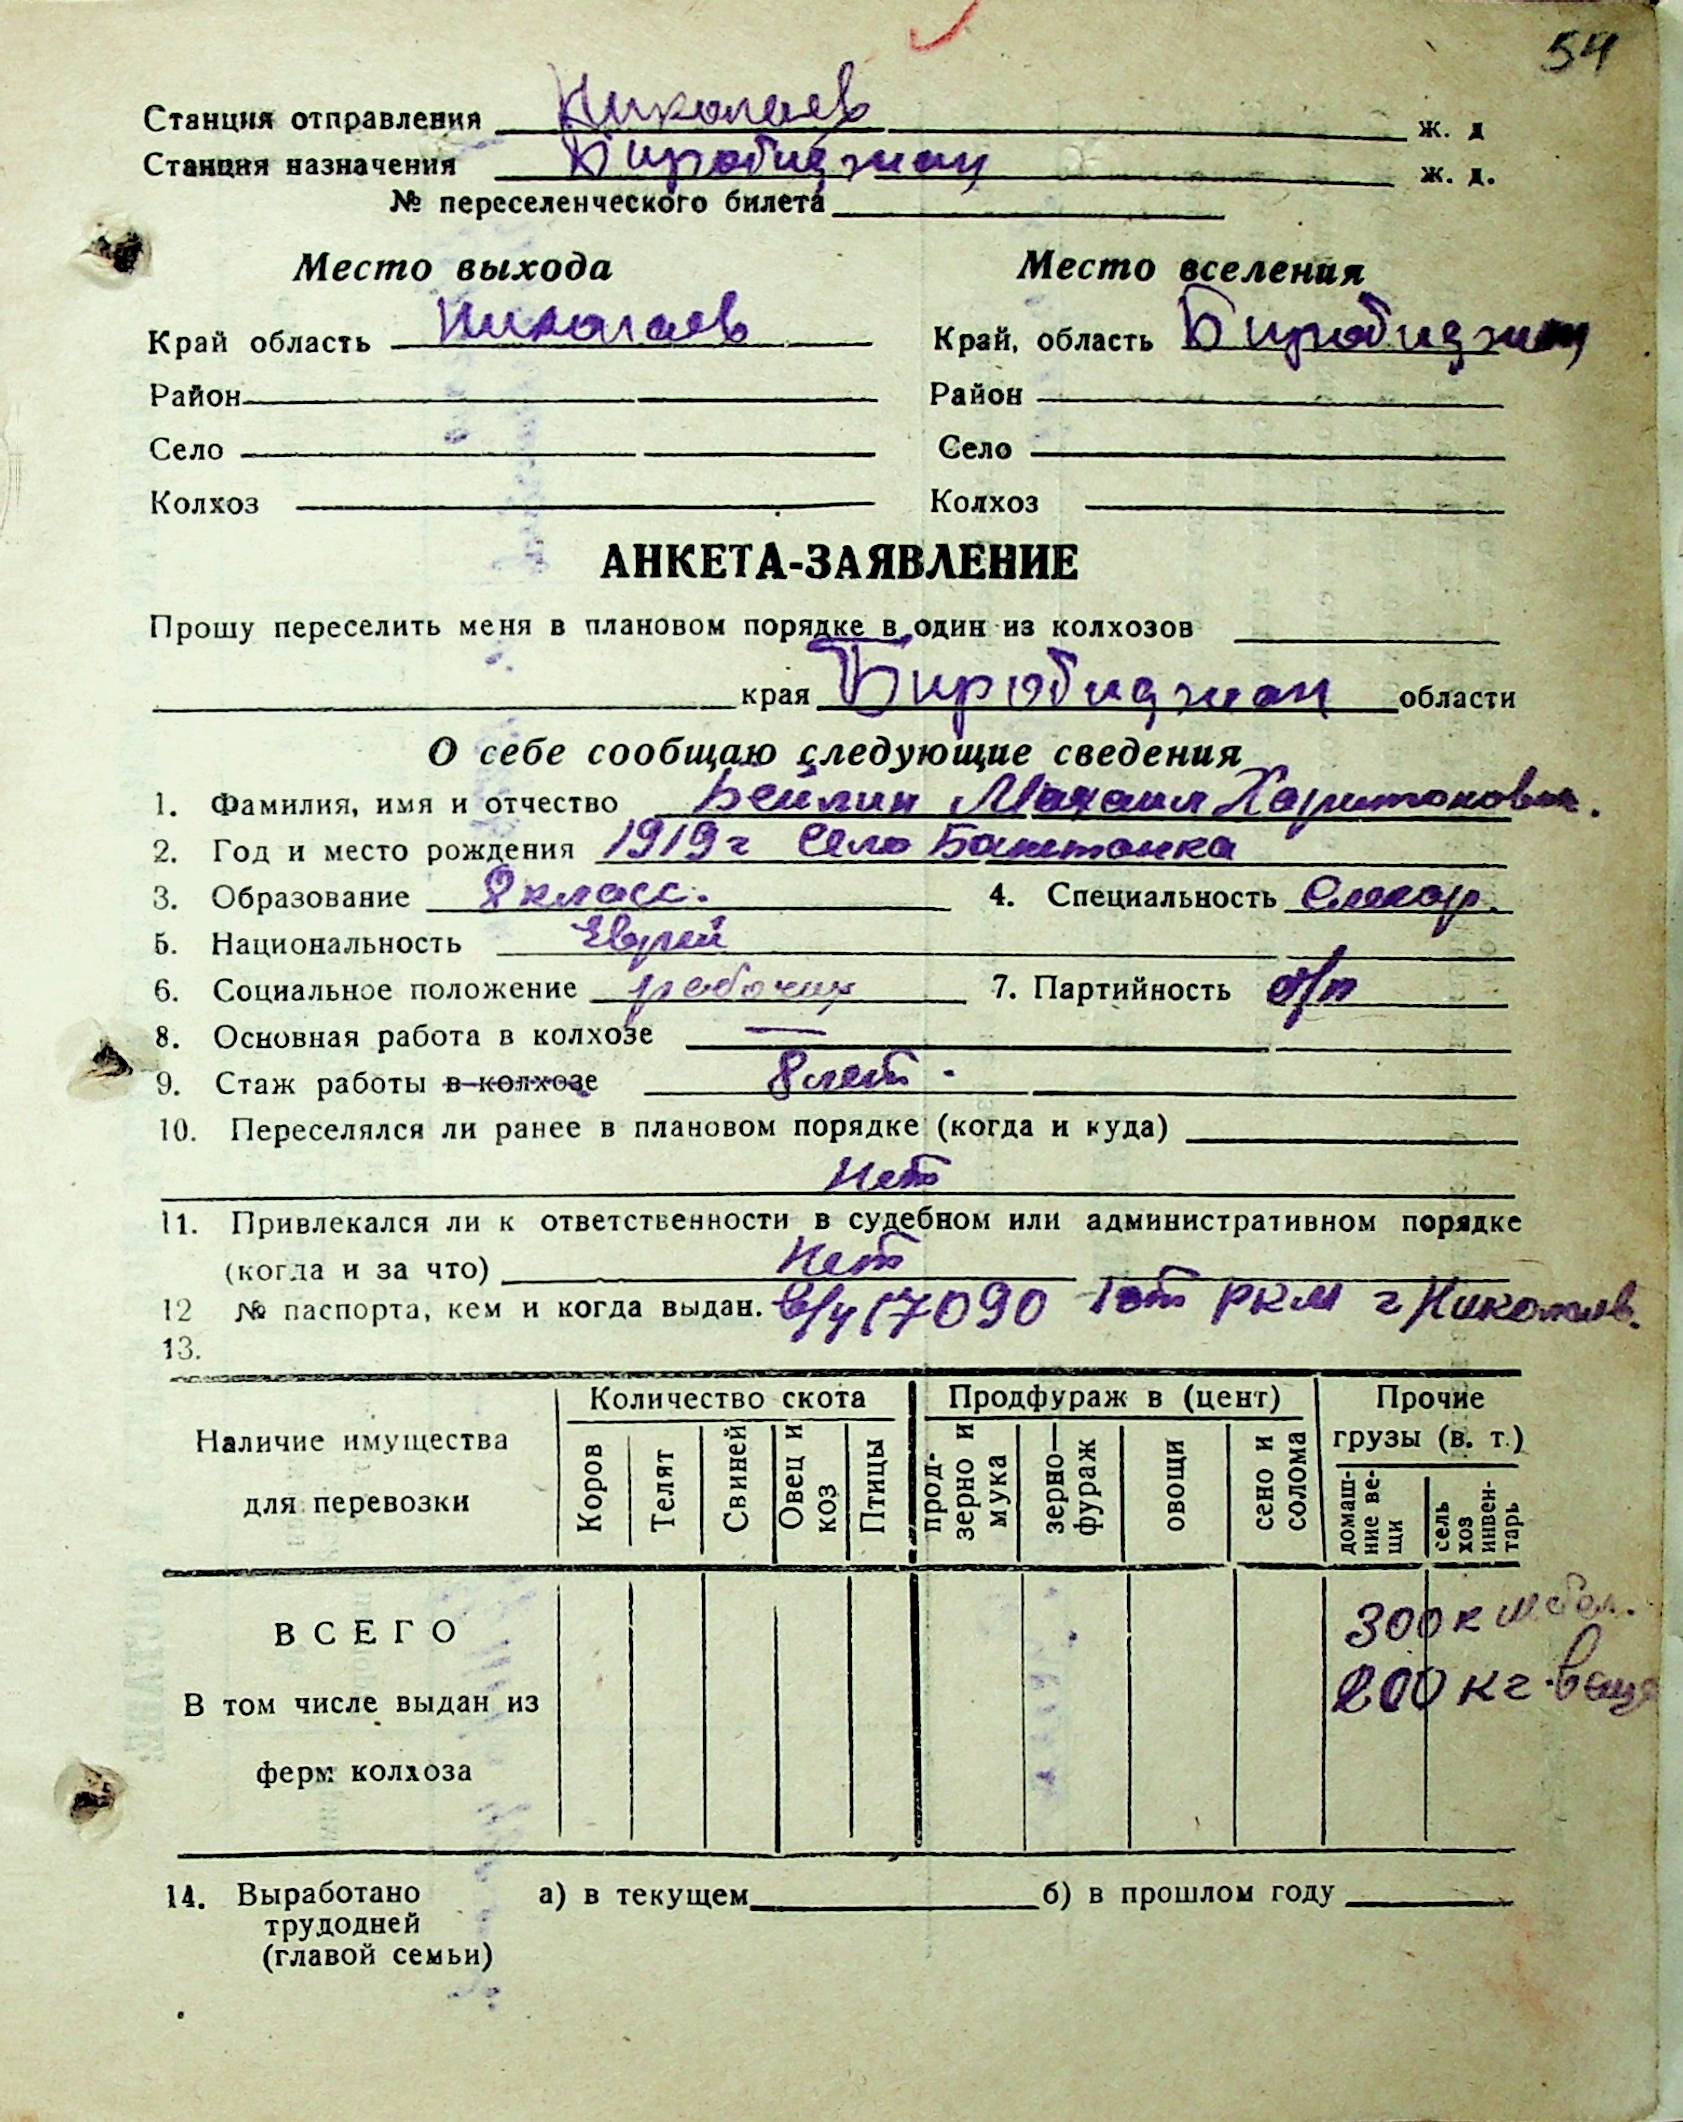 54
Станция отправления Николаев ж. д
Станция назначения Биробиджан ж. д.
№ переселенческого билета
Место выхода Место вселения
Край область Николаев Край, область Биробиджан
Район Район
Село Село
Колхоз Колхоз
АНКЕТА-ЗАЯВЛЕНИЕ
Прошу переселить меня в плановом порядке в один из колхозов
края Биробиджан области
О себе сообщаю следующие сведения
1. Фамилия, имя и отчество Бейлин Михаил Харитонович.
2. Год и место рождения 1919 г Село Баштанка
3. Образование 8 класс. 4. Специальность Слесар.
5. Национальность Еврей
6. Социальное положение рабочих 7. Партийность б/п
8. Основная работа в колхозе —
9. Стаж работы в колхозе 8 лет.
10. Переселялся ли ранее в плановом порядке (когда и куда)
Нет
11. Привлекался ли к ответственности в судебном или административном порядке
(когда и за что) Нет
12 № паспорта, кем и когда выдан. 17090 1от РКМ г Николаев.
13.
Наличие имущества для перевозки Количество скота Продфураж в (цент) Прочие грузы (в. т.)
Коров Телят Свиней Овец и коз Птицы прод-зерно и мука зерно-фураж овощи сено и солома домаш-ние ве-щи сель хоз инвен-тарь
ВСЕГО 300 к мебел.
В том числе выдан из 200 кг. вещя
ферм колхоза
14. Выработано а) в текущем б) в прошлом году
трудодней
(главой семьи)